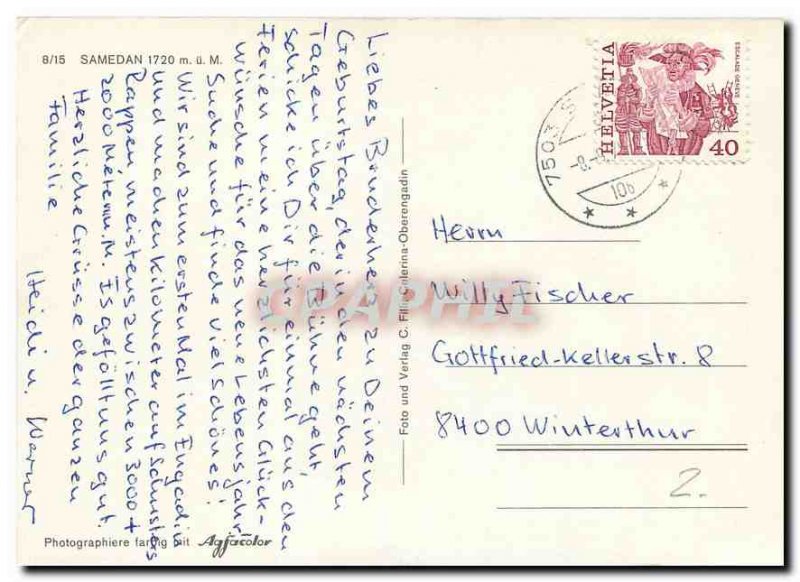 8/15 SAMEDAN 1720 m. ü. M.
Liebes Bruderherz zu Deinem
Geburtstag, der in den nächsten
Tagen über die Bühne geht,
schicke ich Dir für einmal aus den
Ferien meine herzlichsten Glück-
wünsche für das neue Lebensjahr
Suche und finde viel schönes!
Wir sind zum ersten Mal im Engadin
und machen Kilometer auf Schusters
Rappen meistens zwischen 3000 +
2000 Meter ü. M. Is gefölltuns gut.
Herzliche Grüsse der ganzen
Familie
Heidi u. Werner
Photographiere farbig mit Agfacolor
Foto und Verlag C. Filli Celerina-Oberengadin
HELVETIA
ESCALADE GENÈVE
40
7503 S
-8.
10b
Herrn
Willy Fischer
Gottfried-Kellerstr. 8
8400 Winterthur
2.
CPAPHIL